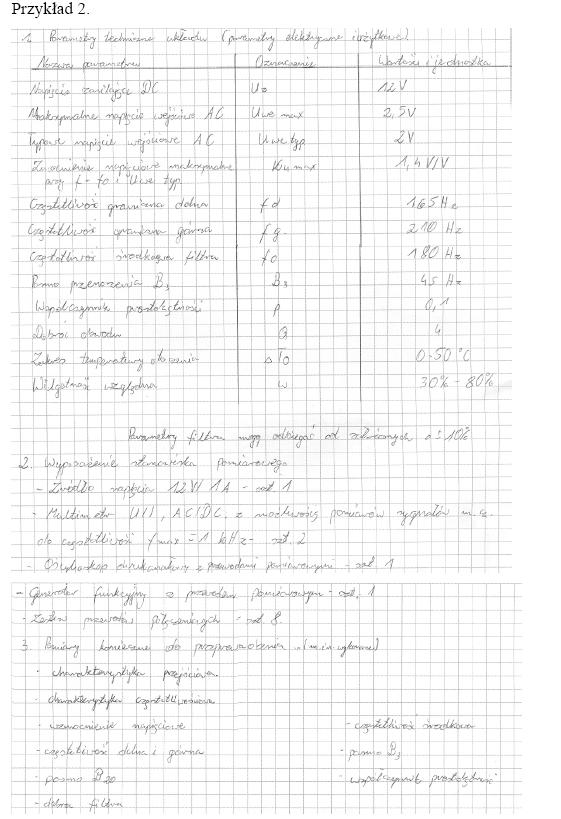 Przykład 2.
1. Parametry techniczne układu (parametry elektryczne i użytkowe)
Nazwa parametru Oznaczenie Wartość i jednostka
Napięcie zasilające DC Uo 12V
Maksymalne napięcie wejściowe AC Uwe max 2,5V
Typowe napięcie wejściowe AC Uwe typ 2V
Wzmocnienie napięciowe maksymalne Ku max 1,4 V/V
przy f = fo i Uwe typ
Częstotliwość graniczna dolna fd 165 Hz
Częstotliwość graniczna górna fg 210 Hz
Częstotliwość środkowa filtra fo 180 Hz
Pasmo przenoszenia B3 B3 45 Hz
Współczynnik prostokątności p 0,1
Dobroć obwodu Q 4
Zakres temperatury otoczenia Δ To 0-50°C
Wilgotność względna w 30% - 80%
Parametry filtra mogą odbiegać od założonych o ± 10%
2. Wyposażenie stanowiska pomiarowego
- Źródło napięcia 12V/1A - szt. 1
- Multimetr U/I, AC/DC, z możliwością pomiarów sygnałów m.cz.
do częstotliwości fmax = 1 kHz - szt. 2
- Oscyloskop dwukanałowy z przewodami pomiarowymi - szt. 1
- Generator funkcyjny z przewodem pomiarowym - szt. 1
- Zestaw przewodów połączeniowych - szt. 8.
3. Pomiary konieczne do przeprowadzenia
- charakterystyka przejściowa
- charakterystyka częstotliwościowa
- wzmocnienie napięciowe - częstotliwość środkowa
- częstotliwość dolna i górna - pasmo B3
- pasmo B20 - współczynnik prostokątności
- dobroć filtra